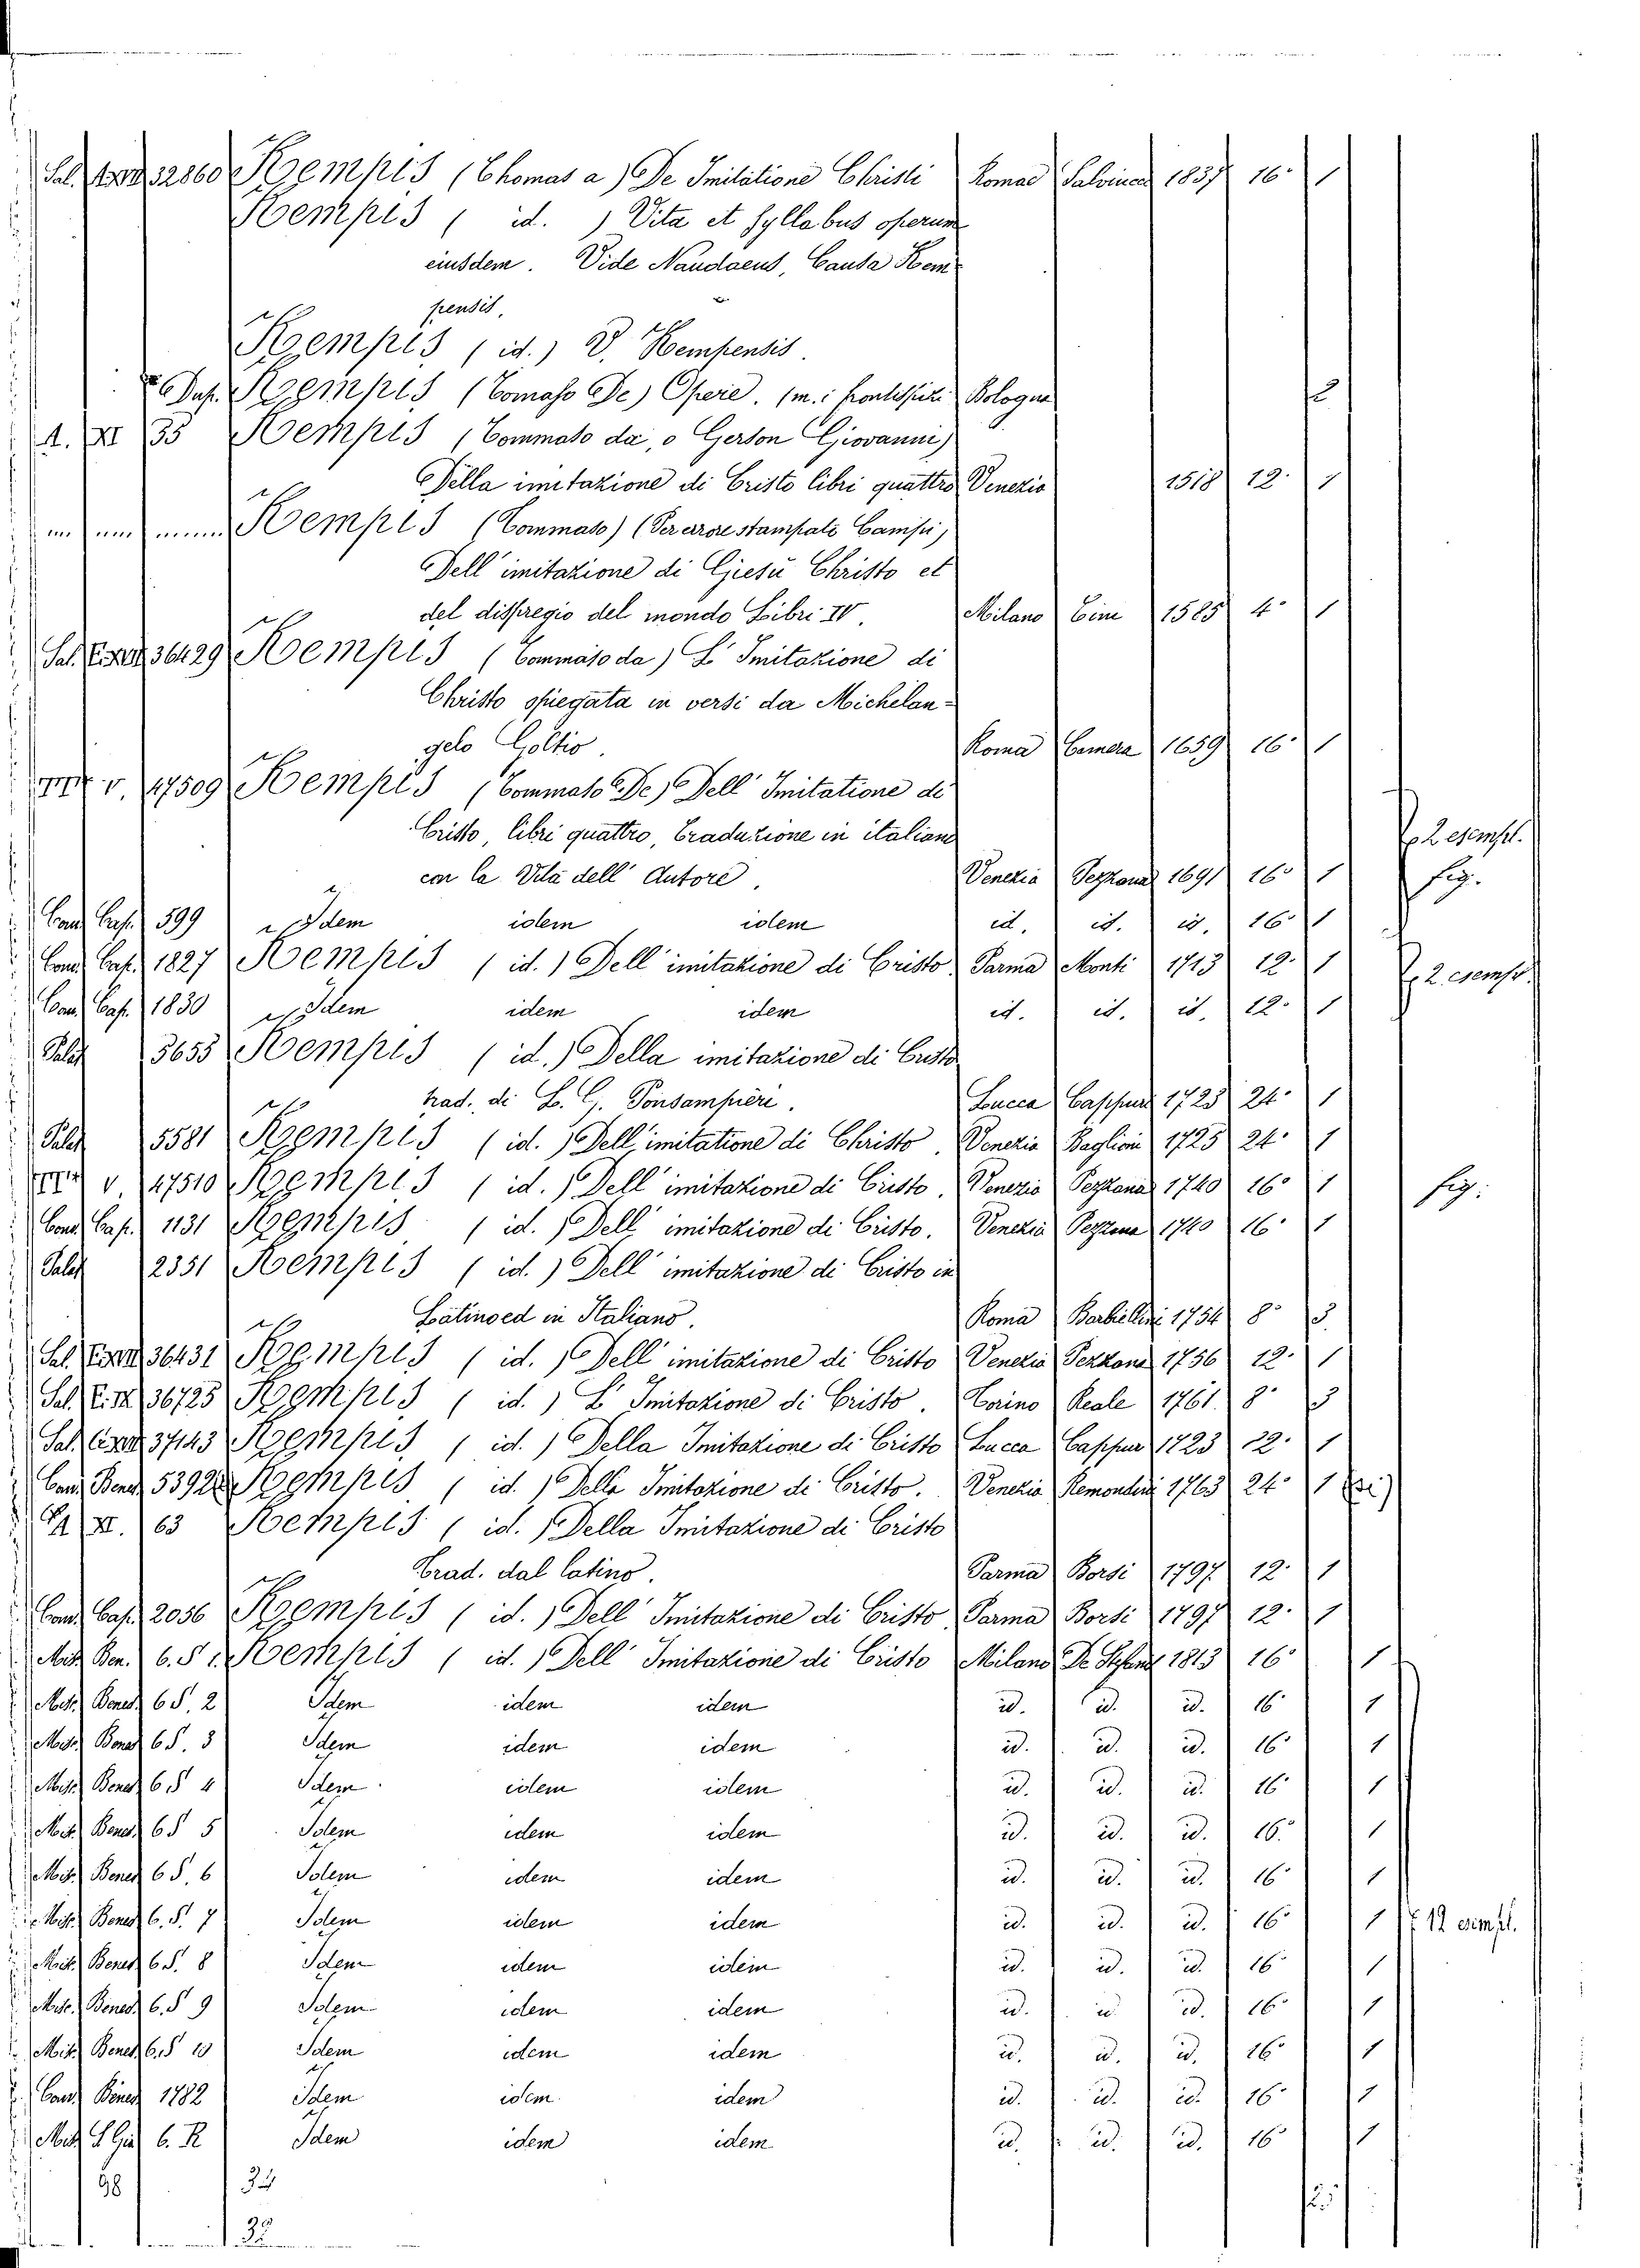 Kempis (Thomas a) De Imitatione Christi Romae Salviucci 1837 16° 1
Kempis ( id. ) Vita et Syllabus operum
eiusdem. Vide Naudaeus, Causa Kem-
pensis.
Kempis (id.) V. Kempensis.
Kempis (Tomaso De) Opere. Bologna 2
A. XI 35 Kempis (Tommaso da, o Gerson Giovanni)
Della imitazione di Cristo libri quattro Venezia 1518 12° 1
Kempis (Tommaso) (Per errore stampato Campis)
Dell' imitazione di Giesù Christo et
del dispregio del mondo Libri IV. Milano Tini 1585 4° 1
36429 Kempis (Tommaso da) L' Imitazione di
Christo spiegata in versi da Michelan-
gelo Goltio. Roma Camera 1659 16° 1
V. 47509 Kempis (Tommaso De) Dell' Imitatione di
Cristo, libri quattro, Traduzione in italiano
con la Vita dell' Autore. Venezia Pezzana 1691 16° 1 2 esempl. fig.
Cam. Cap. 599 Idem idem idem id. id. id. 16° 1
Cam. Cap. 1827 Kempis (id.) Dell' imitazione di Cristo Parma Monti 1713 12° 1 2 esempl.
Cam. Cap. 1830 Idem idem idem id. id. id. 12° 1
Palat 3655 Kempis (id.) Della imitazione di Cristo
trad. di L. G. Ponsampieri. Lucca Cappuri 1723 24° 1
Palat 5581 Kempis (id.) Dell' imitatione di Christo. Venezia Baglioni 1725 24° 1
V. 47510 Kempis (id.) Dell' imitazione di Cristo. Venezia Pezzana 1740 16° 1 fig.
Cam. Cap. 1131 Kempis (id.) Dell' imitazione di Cristo. Venezia Pezzana 1740 16° 1
Palat 2351 Kempis (id.) Dell' imitazione di Cristo in
Latino ed in Italiano. Roma Barbiellini 1754 8° 3
36431 Kempis (id.) Dell' imitazione di Cristo Venezia Pezzana 1756 12° 1
36725 Kempis (id.) L' Imitazione di Cristo. Torino Reale 1761 8° 3
37143 Kempis (id.) Della Imitazione di Cristo Lucca Cappuri 1723 12° 1
Cam. Bened. 5392 Kempis (id.) Della Imitazione di Cristo. Venezia Remondini 1763 24° 1
XI. 63 Kempis (id.) Della Imitazione di Cristo
Trad. dal latino. Parma Borsi 1797 12° 1
Cam. Cap. 2056 Kempis (id.) Dell' Imitazione di Cristo Parma Borsi 1797 12° 1
Mis. Ben. 6. S 1. Kempis (id.) Dell' Imitazione di Cristo Milano De Stefani 1813 16° 1
Mis. Bened. 6 S. 2 Idem idem idem id. id. id. 16° 1
Mis. Bened. 6 S. 3 Idem idem idem id. id. id. 16° 1
Mis. Bened. 6. S 4 Idem idem idem id. id. id. 16° 1
Mis. Bened. 6 S 5 Idem idem idem id. id. id. 16° 1
Mis. Bened. 6 S. 6 Idem idem idem id. id. id. 16° 1
Mis. Bened. 6. S. 7 Idem idem idem id. id. id. 16° 1 12 esempl.
Mis. Bened. 6 S. 8 Idem idem idem id. id. id. 16° 1
Mis. Bened. 6. S 9 Idem idem idem id. id. id. 16° 1
Mis. Bened. 6. S 10 Idem idem idem id. id. id. 16° 1
Cam. Bened. 1782 Idem idem idem id. id. id. 16° 1
6. R Idem idem idem id. id. id. 16° 1
98